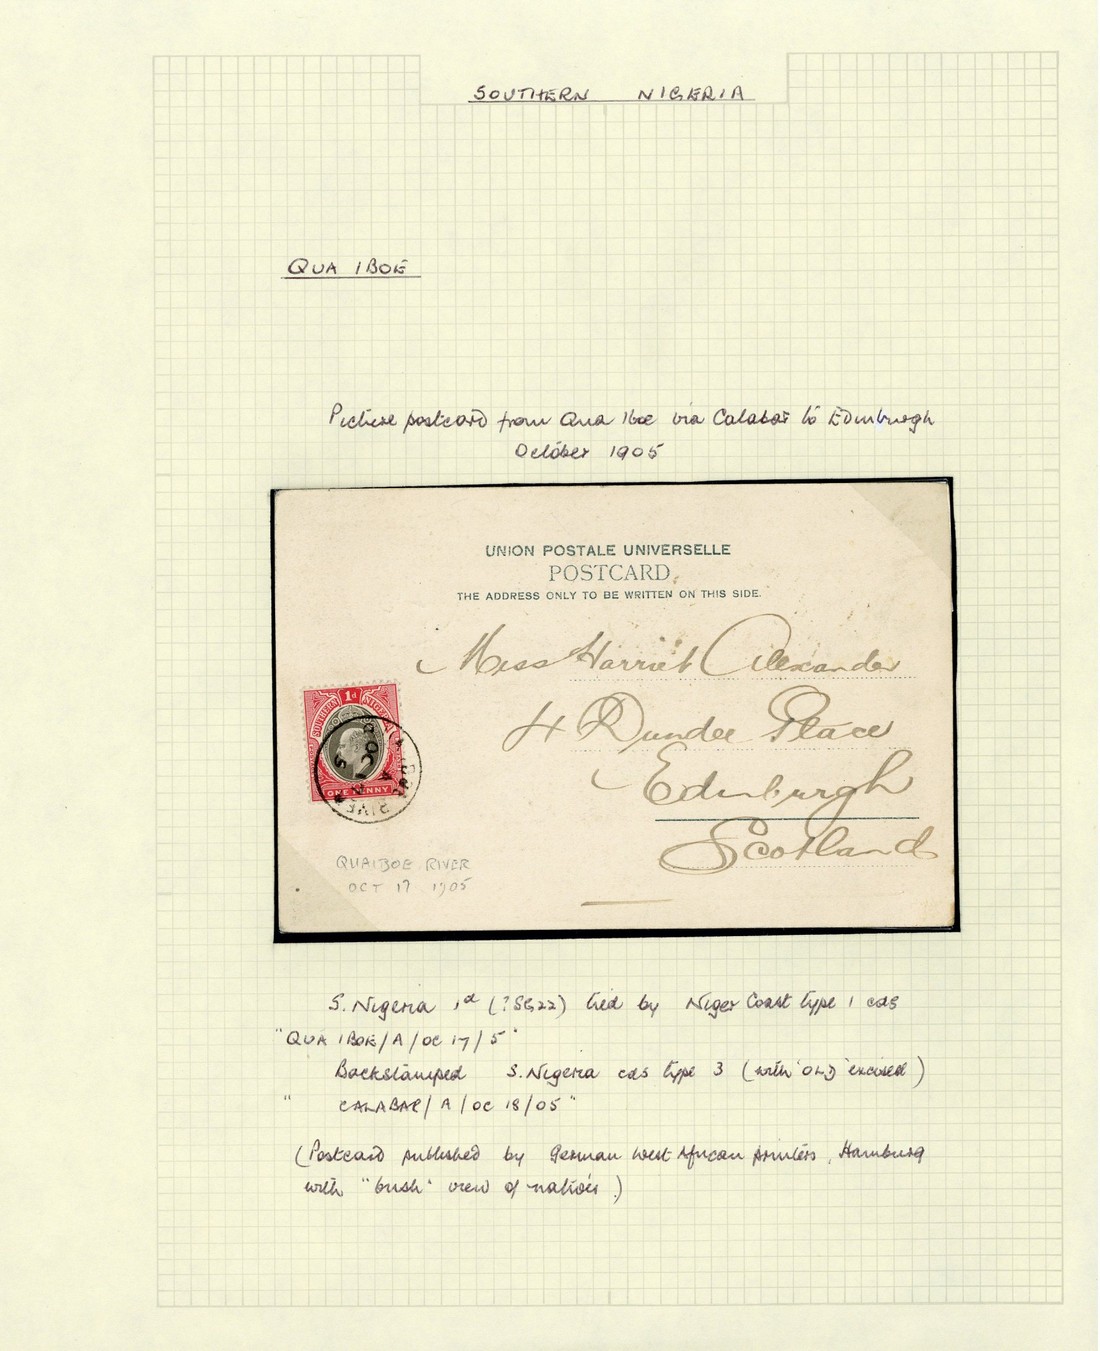 SOUTHERN NIGERIA
QUA IBOE
Picture postcard from Qua Iboe via Calabar to Edinburgh
October 1905
UNION POSTALE UNIVERSELLE
POSTCARD.
THE ADDRESS ONLY TO BE WRITTEN ON THIS SIDE.
Miss Harriet Alexander
4 Dundee Place
Edinburgh
Scotland
1d
SOUTHERN NIGERIA
ONE PENNY
QUA IBOE RIVER
OCT 17 1905
S. Nigeria 1d (?SG22) tied by Niger Coast type 1 cds
"QUA IBOE/A/OC 17/5"
Backstamped S. Nigeria cds type 3 (with 'OLD' excised)
" CALABAR/A/OC 18/05"
(Postcard published by German West African printers, Hamburg
with "bush" view of natives)